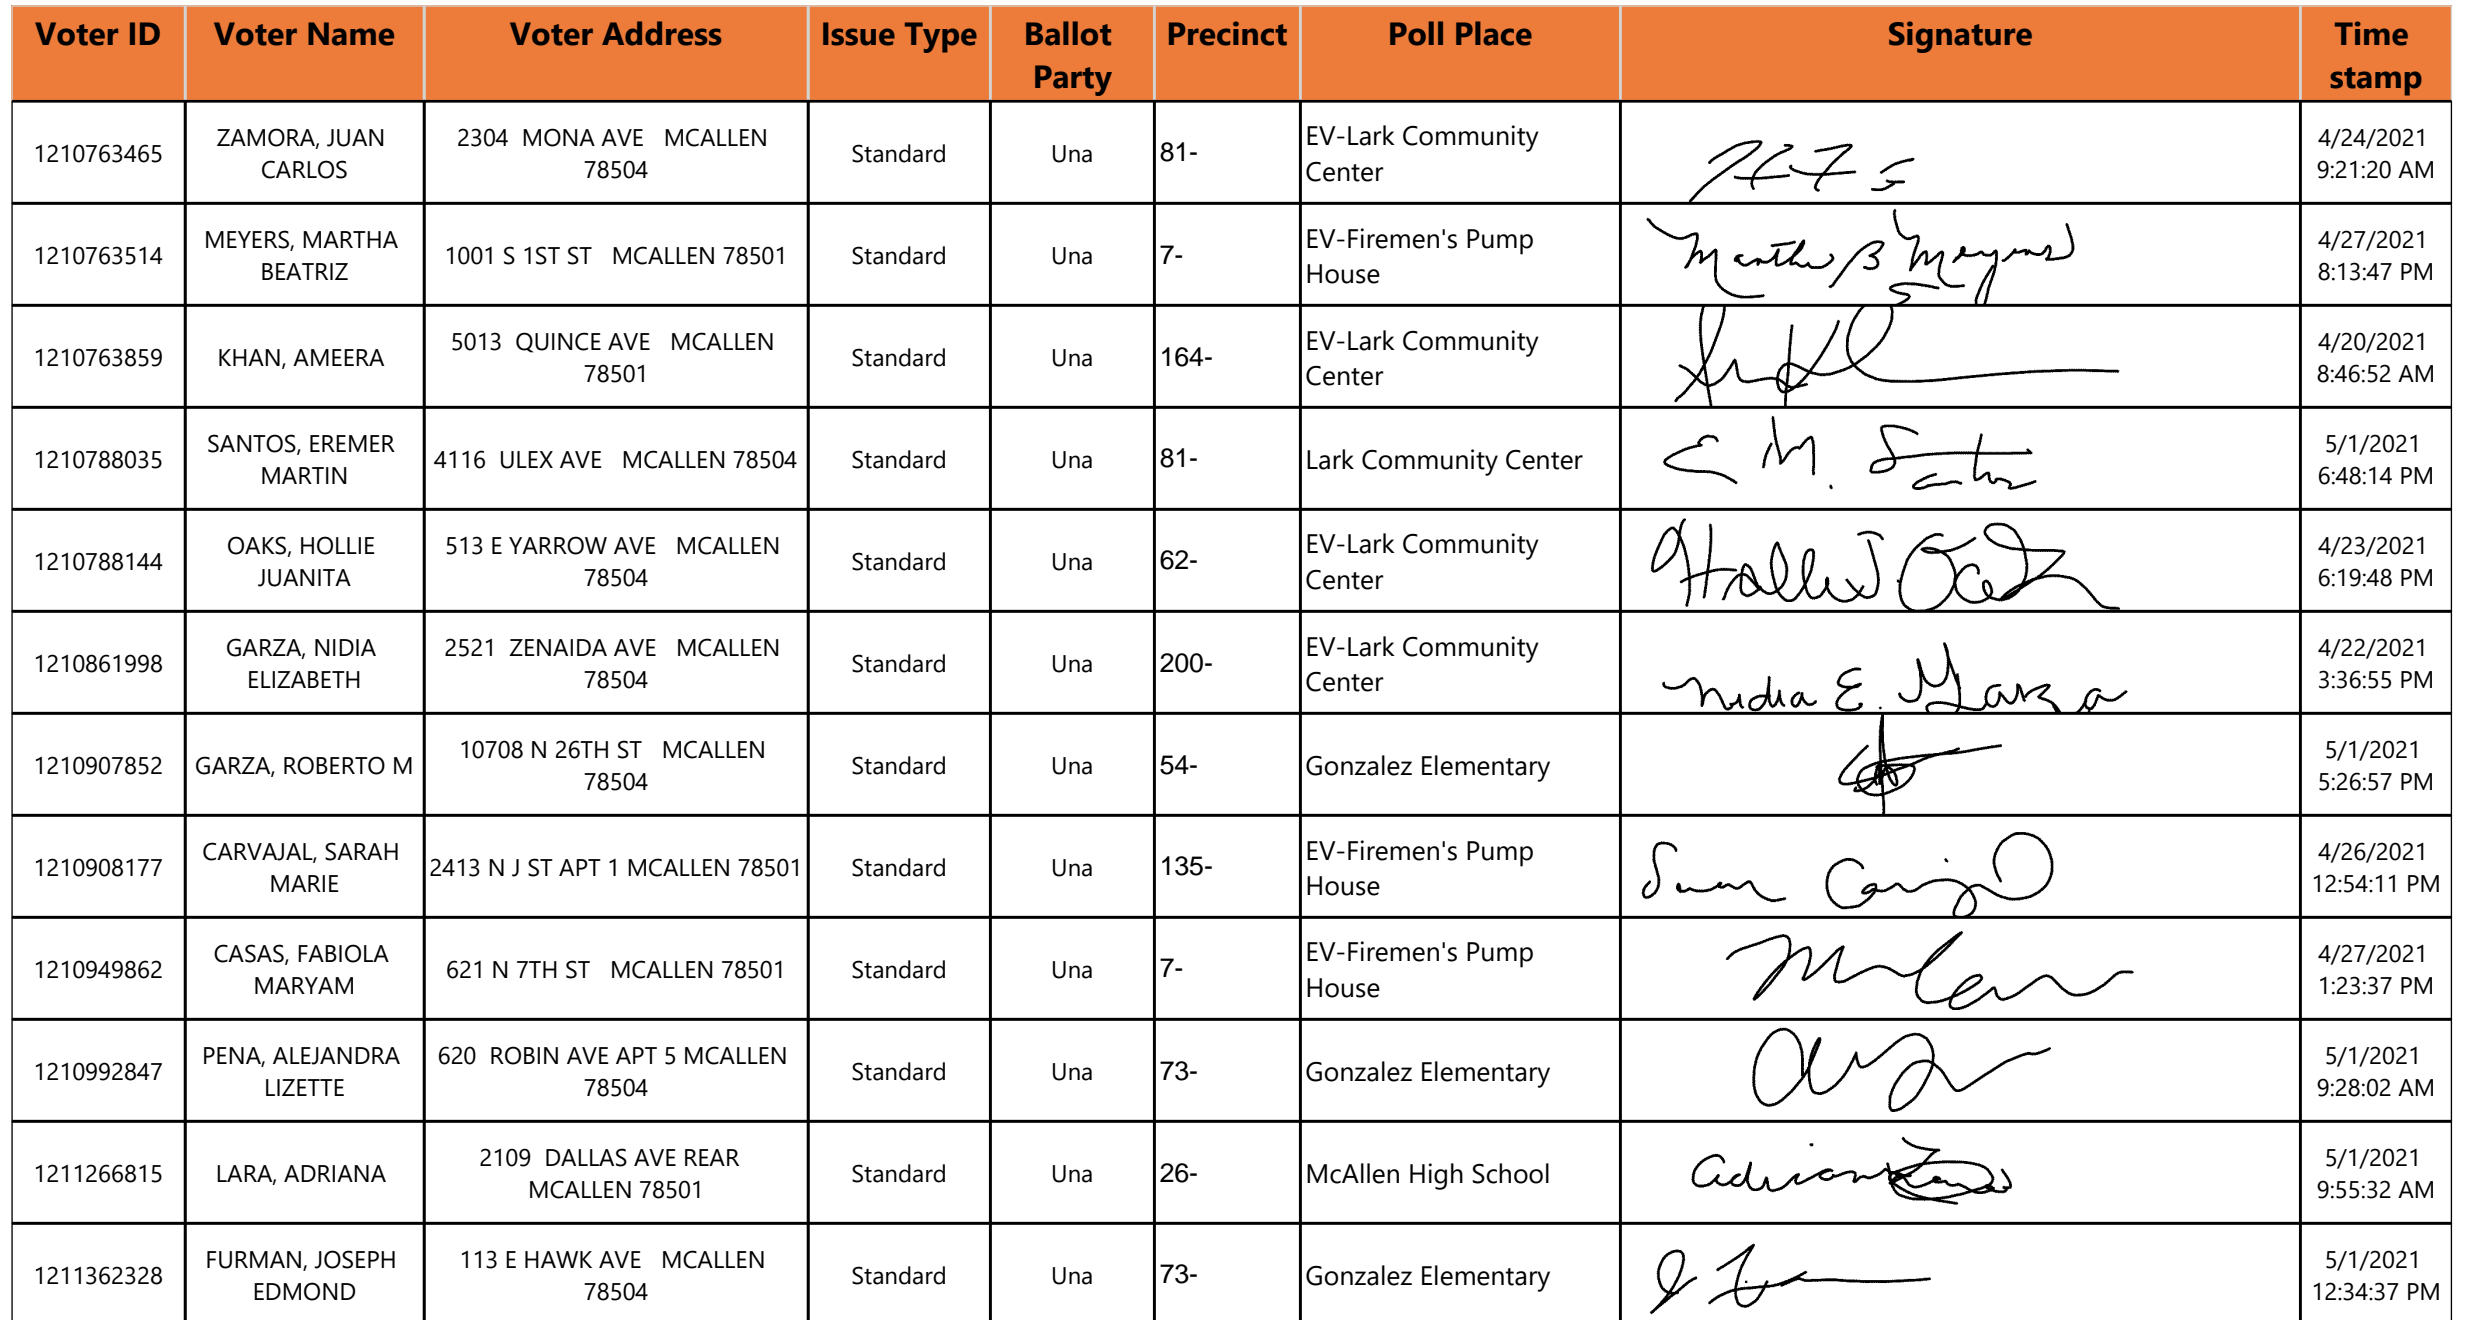 Voter ID Voter Name Voter Address Issue Type Ballot Party Precinct Poll Place Signature Time stamp
1210763465 ZAMORA, JUAN CARLOS 2304 MONA AVE MCALLEN 78504 Standard Una 81- EV-Lark Community Center 4/24/2021 9:21:20 AM
1210763514 MEYERS, MARTHA BEATRIZ 1001 S 1ST ST MCALLEN 78501 Standard Una 7- EV-Firemen's Pump House Martha B Meyers 4/27/2021 8:13:47 PM
1210763859 KHAN, AMEERA 5013 QUINCE AVE MCALLEN 78501 Standard Una 164- EV-Lark Community Center 4/20/2021 8:46:52 AM
1210788035 SANTOS, EREMER MARTIN 4116 ULEX AVE MCALLEN 78504 Standard Una 81- Lark Community Center E M. Santos 5/1/2021 6:48:14 PM
1210788144 OAKS, HOLLIE JUANITA 513 E YARROW AVE MCALLEN 78504 Standard Una 62- EV-Lark Community Center Hollie J Oaks 4/23/2021 6:19:48 PM
1210861998 GARZA, NIDIA ELIZABETH 2521 ZENAIDA AVE MCALLEN 78504 Standard Una 200- EV-Lark Community Center Nidia E. Garza 4/22/2021 3:36:55 PM
1210907852 GARZA, ROBERTO M 10708 N 26TH ST MCALLEN 78504 Standard Una 54- Gonzalez Elementary 5/1/2021 5:26:57 PM
1210908177 CARVAJAL, SARAH MARIE 2413 N J ST APT 1 MCALLEN 78501 Standard Una 135- EV-Firemen's Pump House 4/26/2021 12:54:11 PM
1210949862 CASAS, FABIOLA MARYAM 621 N 7TH ST MCALLEN 78501 Standard Una 7- EV-Firemen's Pump House 4/27/2021 1:23:37 PM
1210992847 PENA, ALEJANDRA LIZETTE 620 ROBIN AVE APT 5 MCALLEN 78504 Standard Una 73- Gonzalez Elementary 5/1/2021 9:28:02 AM
1211266815 LARA, ADRIANA 2109 DALLAS AVE REAR MCALLEN 78501 Standard Una 26- McAllen High School Adriana Lara 5/1/2021 9:55:32 AM
1211362328 FURMAN, JOSEPH EDMOND 113 E HAWK AVE MCALLEN 78504 Standard Una 73- Gonzalez Elementary 5/1/2021 12:34:37 PM